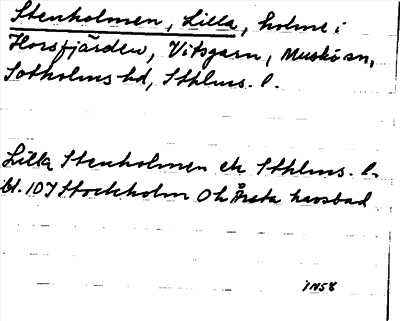 Stenholmen, Lilla, holme i
Horsfjärden, Vitsgarn, Muskö sn,
Sotholms hd, Sthlms. l.
Lilla Stenholmen ek Sthlms. l.
bl. 107 Stockholm Oh Årsta havsbad
1958